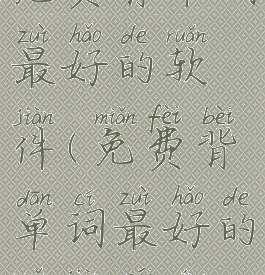 zuì hǎo de ruǎn
最好的软
jiàn miǎn fèi bèi
件(免费背
dān cí zuì hǎo de
单词最好的